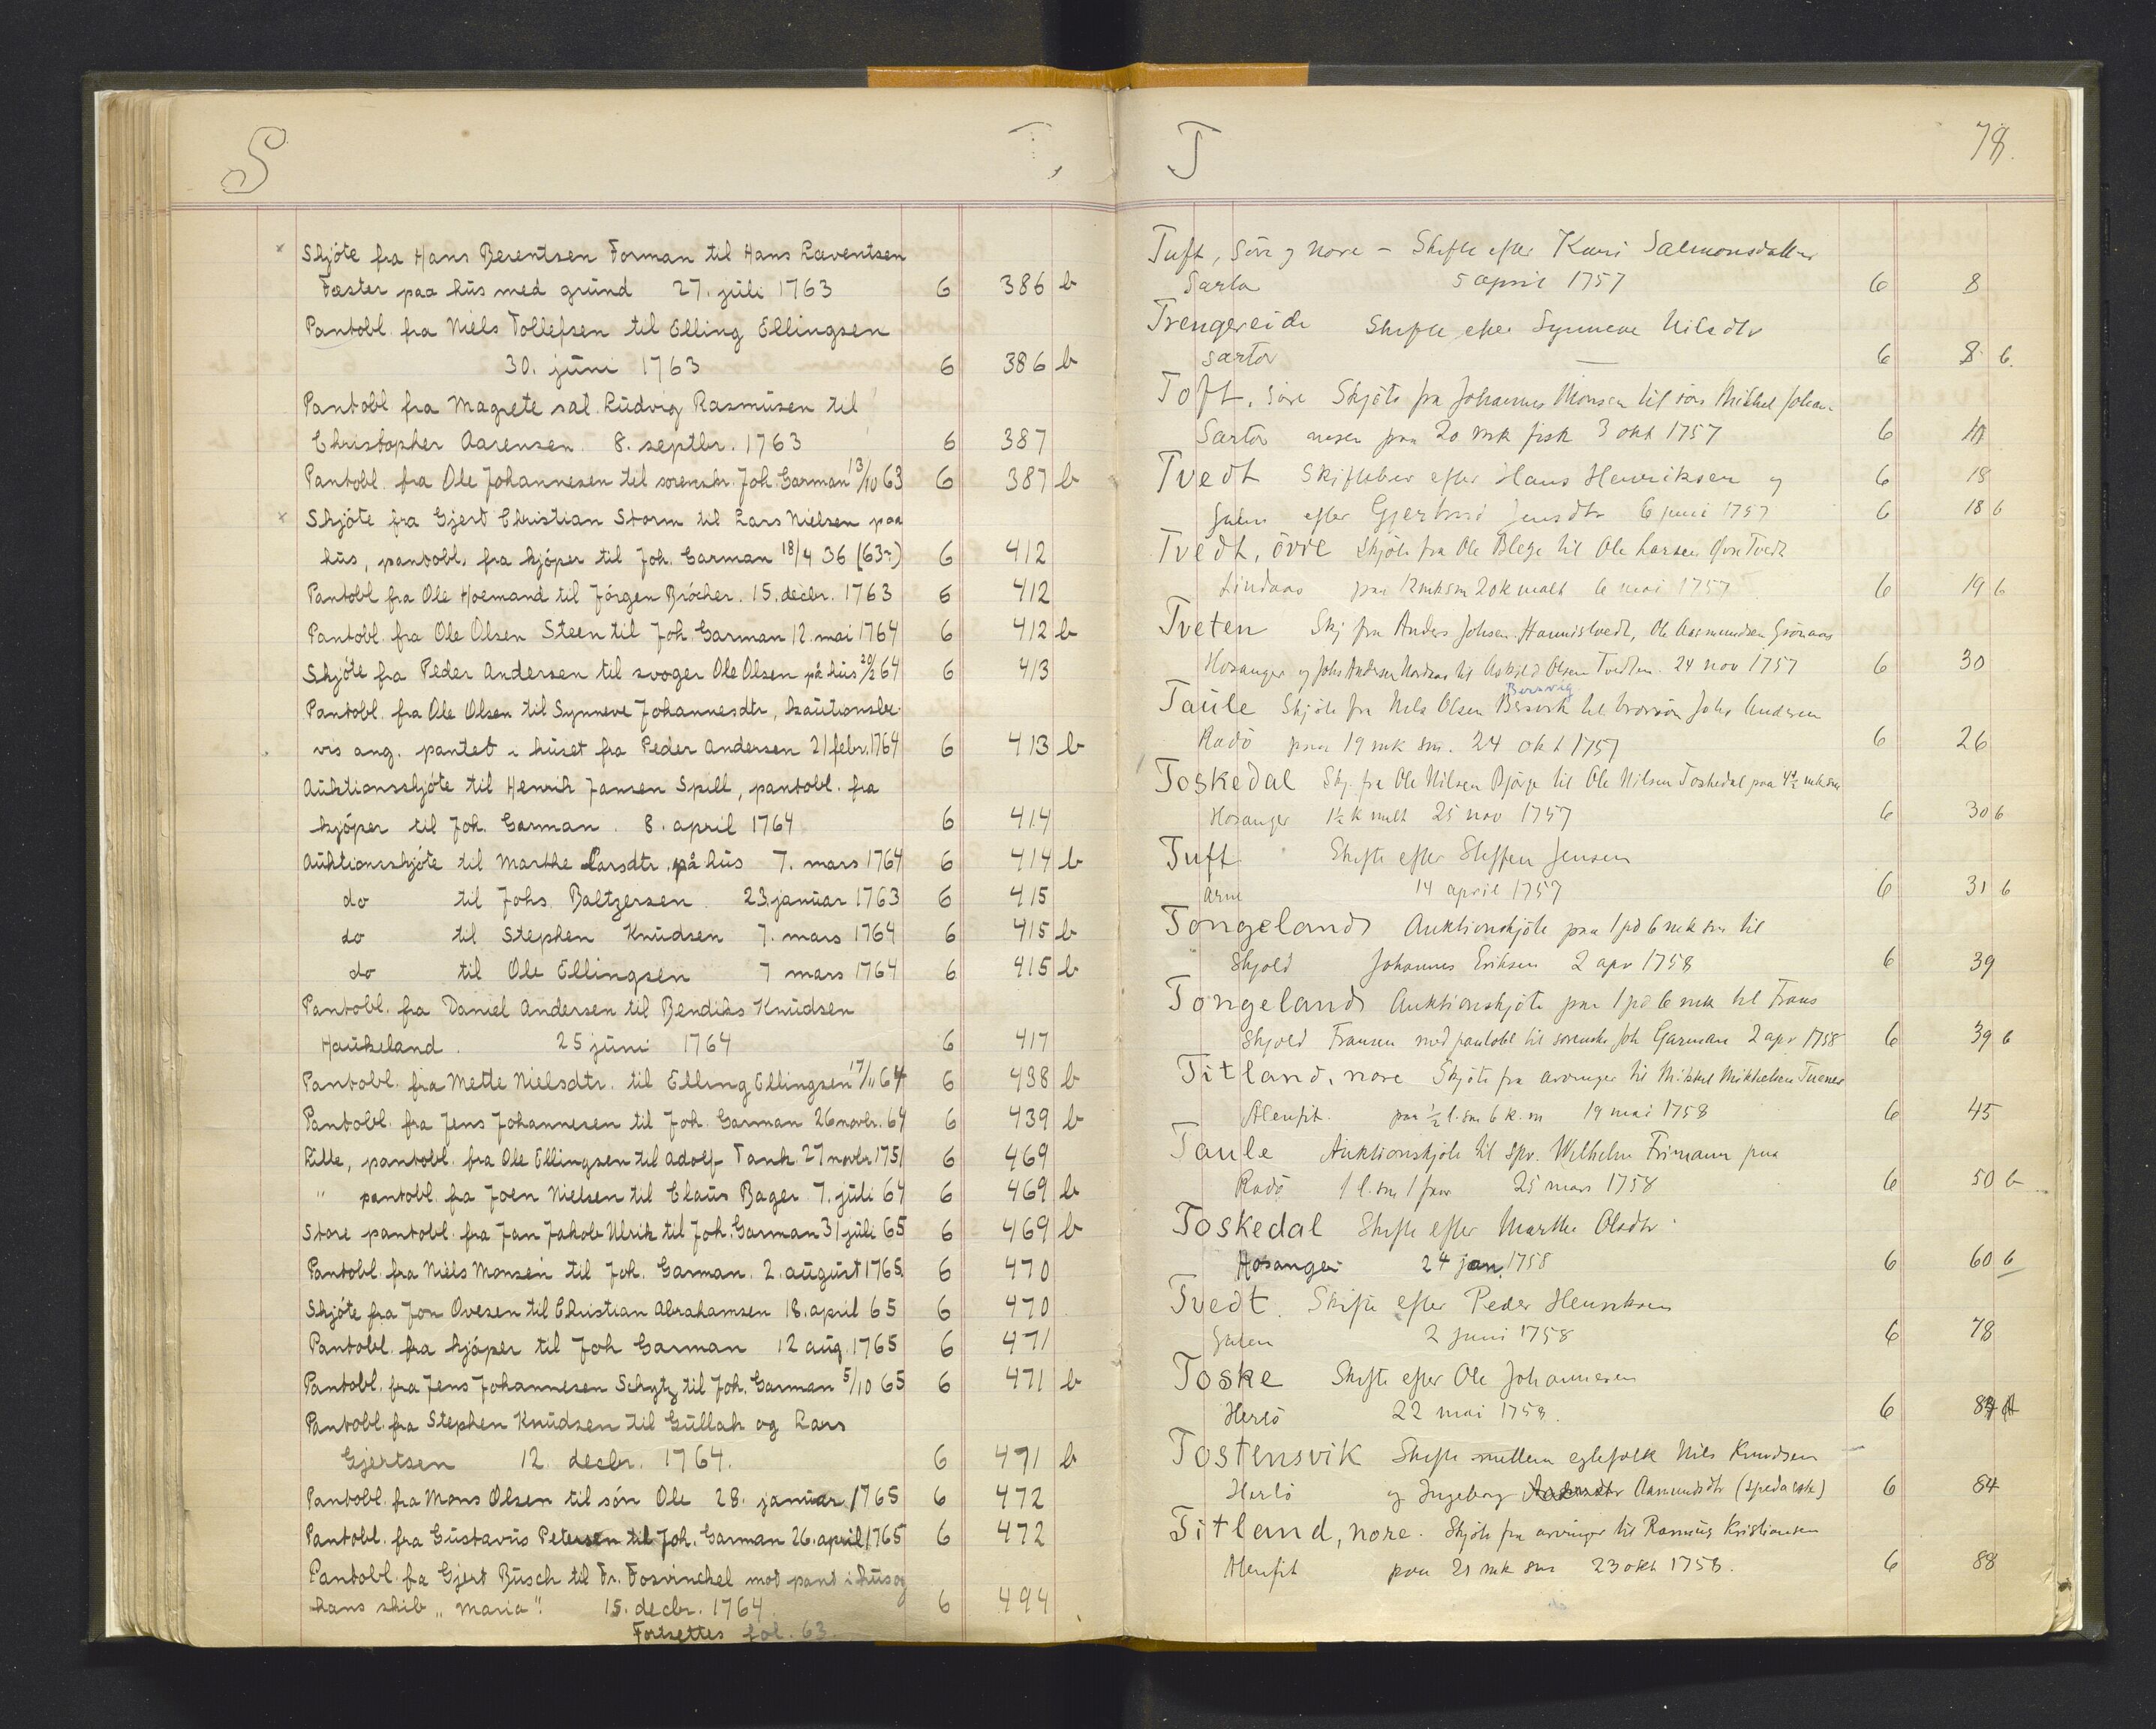 S
T,
Skjöte fra Hans Berentsen Forman til Hans Laventsen
Fæster paa hus med grund 27. juli 1763 6 386 b
Pantobl. fra Niels Tollefsen til Elling Ellingsen
30. juni 1763 6 386 b
Pantobl fra Magrete sal. Ludvig Rasmusen til
Christopher Aarensen. 8. septbr. 1763 6 387
Pantobl. fra Ole Johannesen til sorenskr. Joh. Garman 13/10 63 6 387 b
Skjöte fra Gjert Christian Storm til Lars Nielsen paa
hus, pantobl. fra kjöper til Joh. Garman 18/4 36 (63?) 6 412
Pantobl fra Ole Hoemand til Jörgen Bröcher. 15. decbr. 1763 6 412
Pantobl. fra Ole Olsen Steen til Joh. Garman 12. mai 1764 6 412 b
Skjöte fra Peder Andersen til svoger Ole Olsen på hus 20/2 64 6 413
Pantobl. fra Ole Olsen til Synneve Johannesdtr, kautionsbe-
vis ang. pantet i huset fra Peder Andersen 21 febr. 1764 6 413 b
Auktionsskjöte til Henrik Jansen Spill, pantobl. fra
kjöper til Joh. Garman. 8. april 1764 6 414
Auktionsskjöte til Marthe Larsdtr. på hus 7. mars 1764 6 414 b
do til Johs. Baltzersen. 23. januar 1763 6 415
do til Stephen Knudsen 7. mars 1764 6 415 b
do til Ole Ellingsen 7 mars 1764 6 415 b
Pantobl. fra Daniel Andersen til Bendiks Knudsen
Haukeland. 25 juni 1764 6 417
Pantobl. fra Mette Nielsdtr. til Elling Ellingsen 17/11 64 6 438 b
Pantobl. fra Jens Johannesen til Joh. Garman 26 novbr. 64 6 439 b
Lille, pantobl. fra Ole Ellingsen til Adolf Tank 27 novbr 1751 6 469
" pantobl. fra Joen Nielsen til Claus Bager 7. juli 64 6 469 b
Store pantobl. fra Jan Jakob Ulrik til Joh. Garman 31 juli 65 6 469 b
Pantobl. fra Niels Monsen til Joh. Garman. 2. august 1765. 6 470
Skjöte fra Jon Ovesen til Christian Abrahamsen 18. april 65 6 470
Pantobl. fra kjöper til Joh Garman 12 aug. 1765 6 471
Pantobl. fra Jens Johannesen Schytz til Joh. Garman 5/10 65 6 471 b
Pantobl. fra Stephen Knudsen til Gullak og Lars
Gjertsen 12. decbr. 1764. 6 471 b
Pantobl. fra Mons Olsen til sön Ole 28. januar 1765 6 472
Pantobl. fra Gustavus Petersen til Joh. Garman 26. april 1765 6 472
Pantobl. fra Gjert Busch til Fr. Fosvinckel mot pant i hus og
hans skib "Maria". 15. decbr. 1764. 6 494
Fortsettes fol. 63.
T
78.
Tuft, Söre og Nore - Skifte efter Kari Salmonsdatter
Sartor 5 april 1757 6 8
Trengereide Skifte efter Synneve Nilsdtr
Sartor — 6 8 b.
Toft, Söre Skjöte fra Johannes Monsen til sön Mikkel Johan-
Sartor nesen paa 20 mk fisk 3 okt 1757 6 10
Tvedt Skiftebrev efter Hans Henriksen og 6 18
Gulen efter Gjertrud Jensdtr 6 juni 1757 6 18 b
Tvedt, övre Skjöte fra Ole Blege til Ole Larsen Övre Tvedt
Lindaas paa 12 mk sm 20 k malt 6 mai 1757 6 19 b
Tveten Skj fra Anders Johsen Hannistvedt, Ole Aasmundsen Grönaas
Hosanger og Johs Andersen Nordaas til Askjeld Olsen Tvedten. 24 nov 1757 6 30
Taule Skjöte fra Nels Olsen Bersvik til brorsön Johs Andersen
Radö paa 19 mk sm. 24 okt 1757 6 26
Toskedal Skj. fra Ole Nilsen Bjørge til Ole Nilsen Toskedal paa 4½ mk sm
Hosanger 1½ k malt 25 nov 1757 6 30 b
Tuft Skifte efter Steffen Jensen
Arne 14 april 1757 6 31 b
Tongeland Auktionskjöte paa 1 pd 6 mk sm til
Skjold Johannes Eriksen 2 apr 1758 6 39
Tongeland Auktionskjöte paa 1 pd 6 mk til Frans
Skjold Fransen med pantobl til sorenskr Joh Garman 2 apr 1758 6 39 b
Titland, nore Skjöte fra arvinger til Mikkel Mikkelsen Tuenes
Alenfit. paa ½ l. sm 6 k. m 19 mai 1758 6 45
Taule Auktionskjöte til spr. Wilhelm Frimann paa
Radö 1 l. sm 1 faar 25 mars 1758 6 50 b
Toskedal Skifte efter Marthe Olsdtr
Hosanger 24 jan. 1758 6 60 b
Tvedt. Skifte efter Peder Henriksen
Gulen 2 juni 1758 6 78
Toske Skifte efter Ole Johannesen
Herlö 22 mai 1758. 6 84
Tostensvik Skifte mellem egtefolk Nils Knudsen
Herlö og Ingeborg Aamundsdtr (spedalsk) 6 84
Titland, nore. Skjöte fra arvinger til Rasmus Kristiansen
Alenfit paa 21 mk sm 23 okt 1758. 6 88